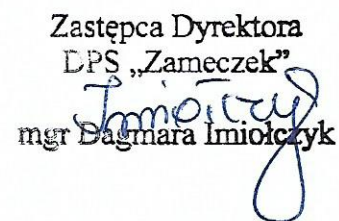 Zastępca Dyrektora
DPS „Zameczek”
Imiołczyk
mgr Dagmara Imiołczyk